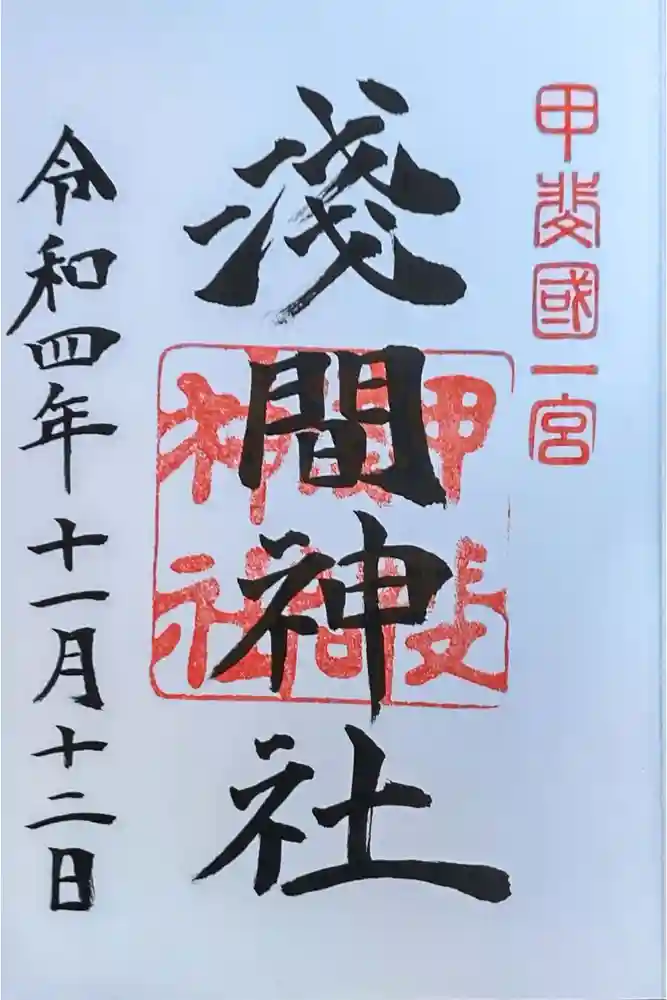 甲斐國一宮
淺間神社
令和四年十一月十二日